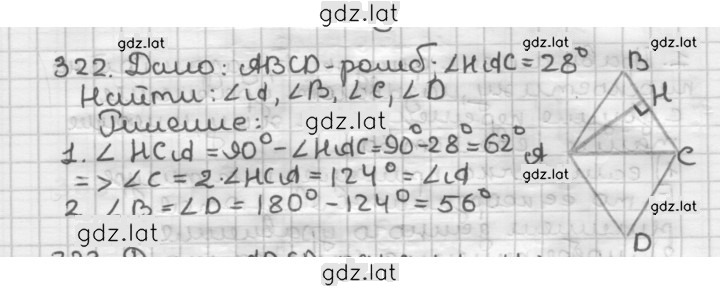 gdz.lat
gdz.lat
322. Дано: ABCD-ромб; ∠HAC = 28°
gdz.lat
Найти: ∠A, ∠B, ∠C, ∠D
Решение:
gdz.lat
1. ∠ HCA = 90° - ∠HAC = 90° - 28° = 62°
=> ∠C = 2·∠HCA = 124° = ∠A
2. ∠B = ∠D = 180° - 124° = 56°
gdz.lat
B
gdz.lat
H
A
C
gdz.lat
gdz.lat
D
gdz.lat